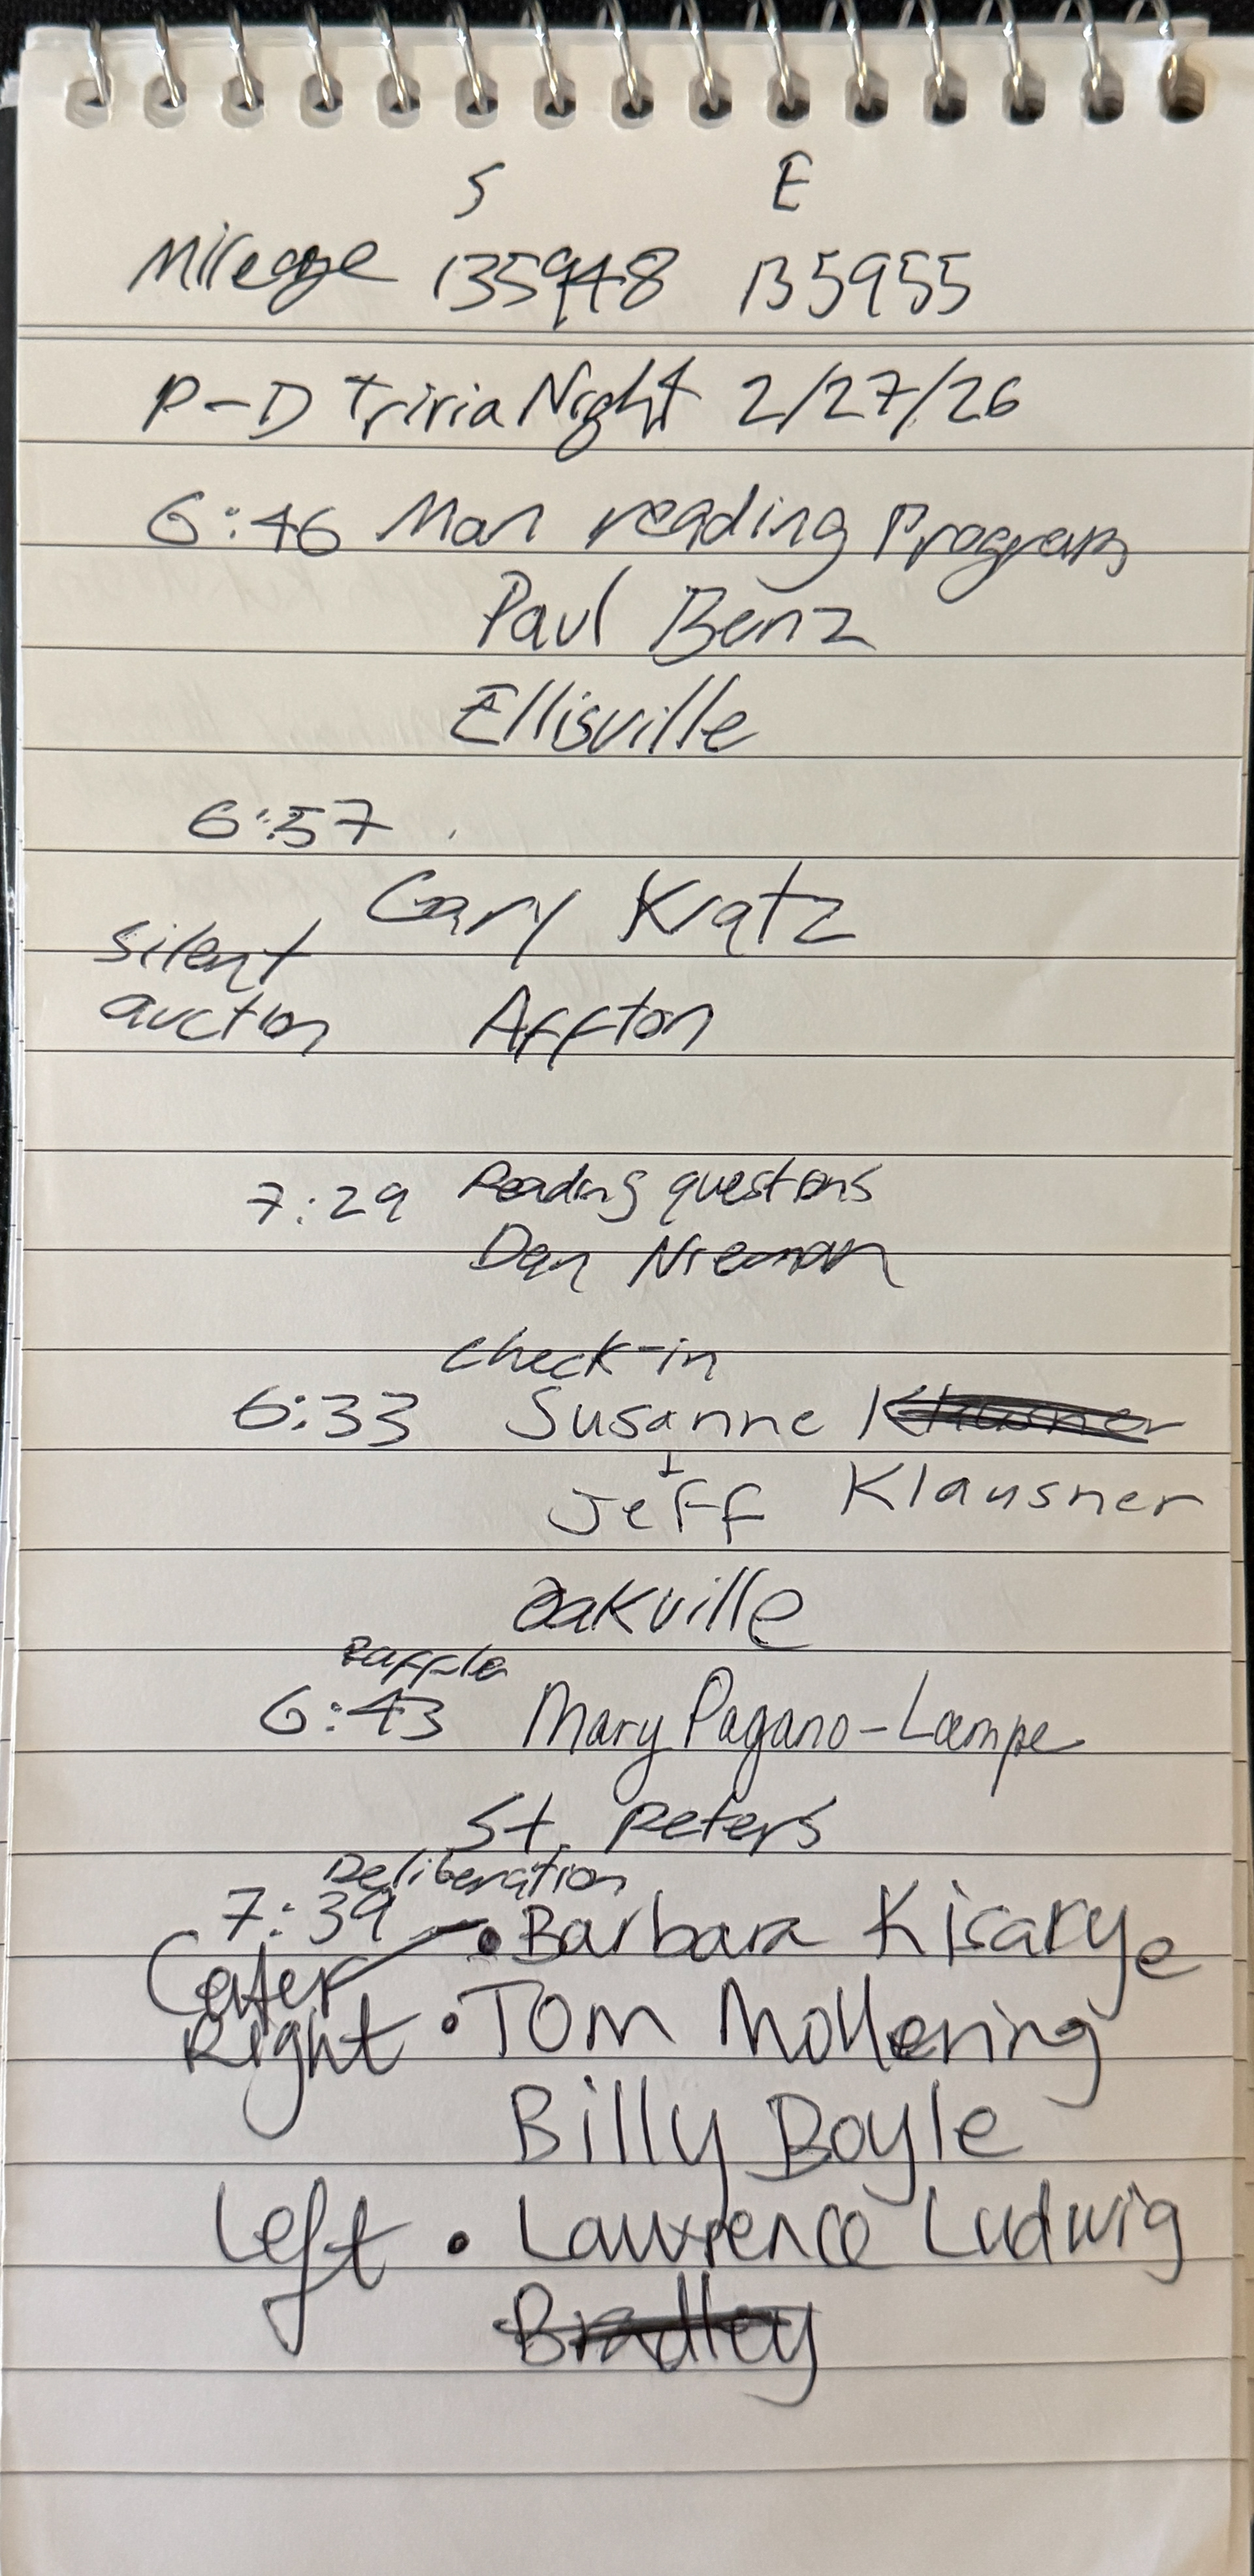 S E
Mileage 135948 135955
P-D Trivia Night 2/27/26
6:46 Man reading Program
Paul Benz
Ellisville
6:57
Gary Kratz
silent
auction Affton
7:29 Reading questions
Dan Nieman
check-in
6:33 Susanne Klausner
+
Jeff Klausner
Oakville
Raffle
6:43 Mary Pagano-Lampe
St. Peters
Deliberation
7:39 • Barbara Kisarye
Center
Right • Tom Mollering
Billy Boyle
Left • Lawrence Ludwig
Bradley